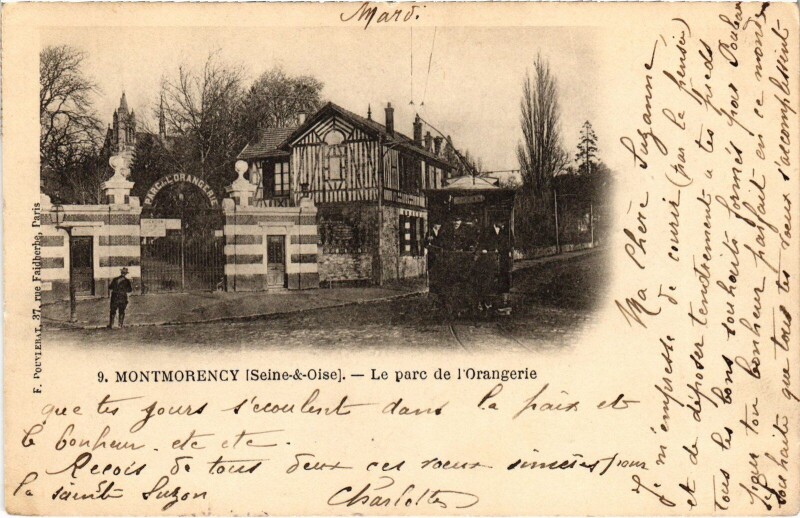 Mardi
PARC DE L'ORANGERIE
F. POUVIERAT, 37, rue Faidherbe, Paris
9. MONTMORENCY [Seine-&-Oise]. — Le parc de l'Orangerie
Ma Chère Suzanne
Je m'empresse de courir (par la pensée)
et de déposer tendrement à tes pieds
tous les bons souhaits formés par
ton bonheur parfait en ce monde
souhaite que tous tes vœux s'accomplissent
que tes jours s'écoulent dans la paix et
le bonheur. etc etc.
Reçois de tous deux ces vœux sincères pour
la sainte Suzon
Charlotte